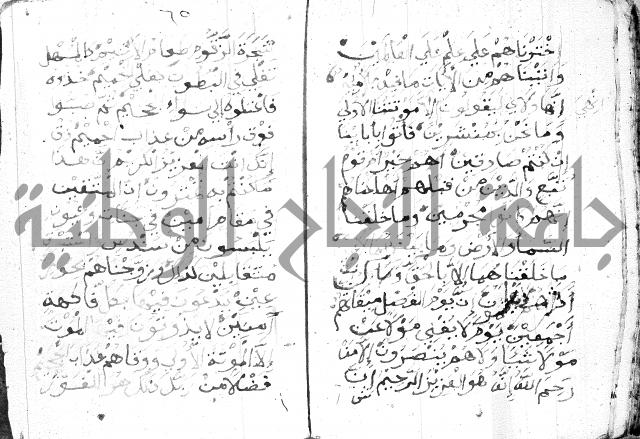 اخترناهم على علم على العالمين
وآتيناهم من الآيات ما فيه
ان هؤلاء ليقولون الا موتتنا الاولى
وما نحن بمنشرين فأتوا بآبائنا
ان كنتم صادقين اهم خير ام قوم
تبع والذين من قبلهم اهلكناهم
انهم كانوا مجرمين وما خلقنا
السماوات والارض وما
ما خلقناهما الا بالحق ولكن
اكثرهم ان يوم الفصل ميقاتهم
اجمعين يوم لا يغني مولا عن
مولا شيئا ولا هم ينصرون الا من
رحم الله انه هو العزيز الرحيم ان
شجرة الزقوم طعام الاثيم كالمهل
تغلي في البطون كغلي الحميم خذوه
فاعتلوه الى سواء الجحيم ثم صبوا
فوق راسه من عذاب الحميم ذق
انك انت العزيز الكريم ان هذا
ما كنتم به تمترون ان المتقين
في مقام امين في جنات وعيون
يلبسون من سندس
متقابلين كذلك وزوجناهم بحور
عين يدعون فيها بكل فاكهة
آمنين لا يذوقون فيها الموت
الا الموتة الاولى ووقاهم عذاب الجحيم
فضلا من ربك ذلك هو الفوز
جامعة النجاح الوطنية